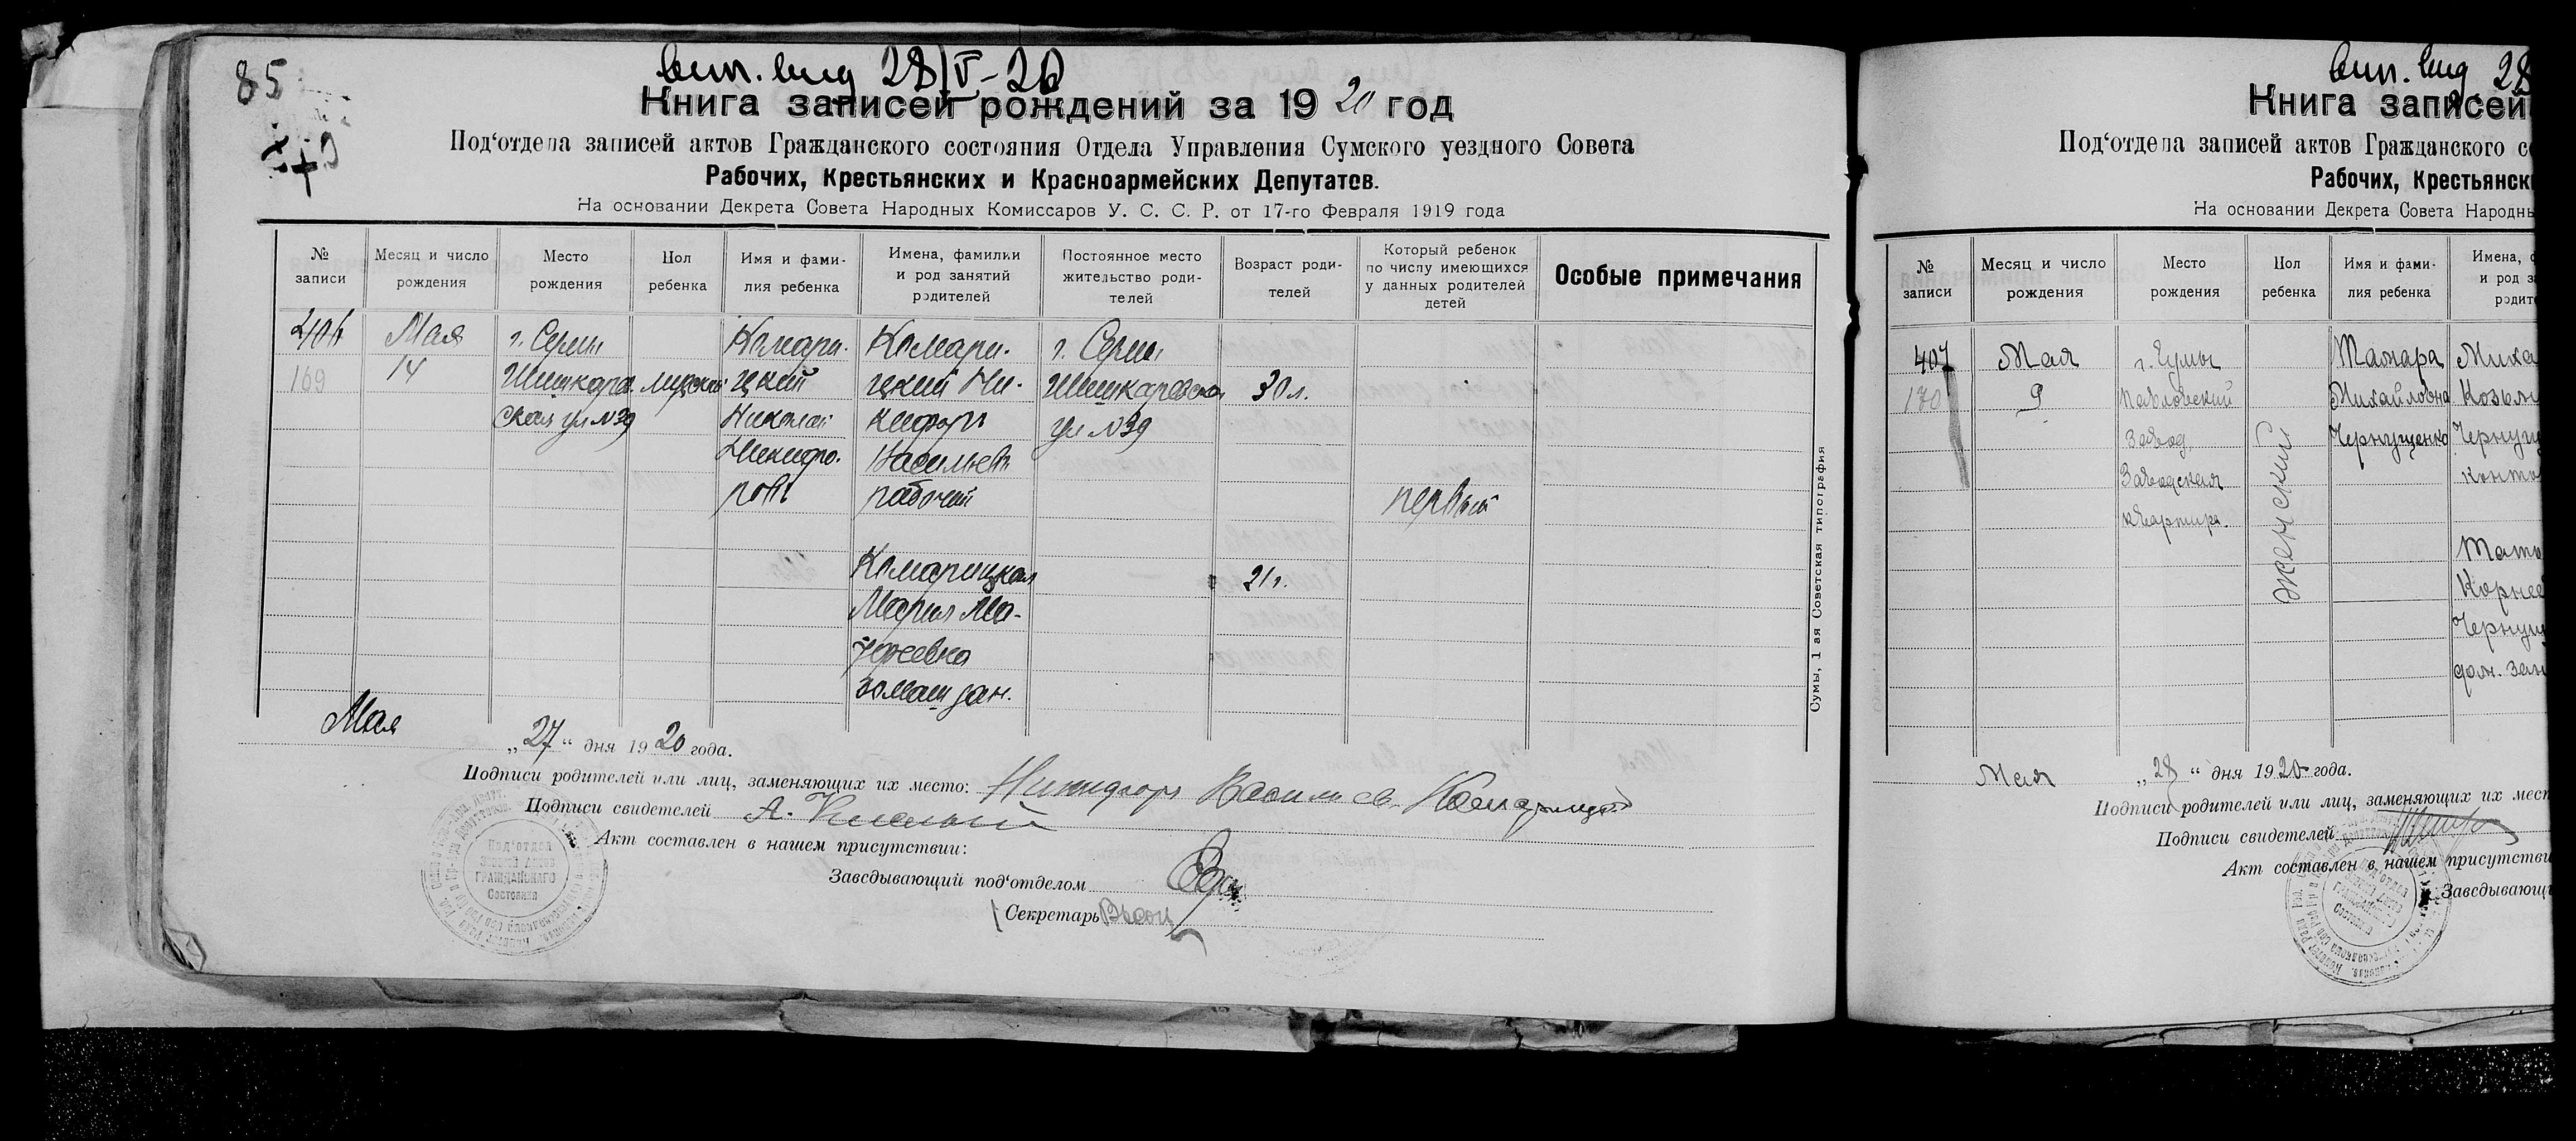 85
вып. выд 28/V-20
Книга записей рождений за 1920 год
Под‘отдела записей актов Гражданского состояния Отдела Управления Сумского уездного Совета
Рабочих, Крестьянских и Красноармейских Депутатов.
На основании Декрета Совета Народных Комиссаров У. С. С. Р. от 17-го Февраля 1919 года
№ записи
Месяц и число рождения
Место рождения
Пол ребенка
Имя и фамилия ребенка
Имена, фамилии и род занятий родителей
Постоянное место жительство родителей
Возраст родителей
Который ребенок по числу имеющихся у данных родителей детей
Особые примечания
406
169
Мая
14
г. Сумы
Шишкаров
ская ул №39
мужской
Комари-
цкий
Николай
Никифо-
ров
Комари-
цкий Ни-
кифор
Васильев
рабочий
г. Сумы
Шишкаровская
ул №39
30 л.
первый
Комарицкая
Мария Ма-
домаш зан.
21 г.
Мая „27“ дня 1920 года.
Подписи родителей или лиц, заменяющих их место: Никифор Васильев Комарицкий
Подписи свидетелей А.
Акт составлен в нашем присутствии:
Заведывающий под‘отделом
Секретарь
Под‘отдел
Записей Актов
ГРАЖДАНСКОГО
Состояния
Сумы, 1 ая Советская типография
вып. выд 28
Книга записей
Под‘отдела записей актов Гражданского со
Рабочих, Крестьянск
На основании Декрета Совета Народн
№ записи
Месяц и число рождения
Место рождения
Пол ребенка
Имя и фамилия ребенка
Имена, ф
и род за
родит
407
170
Мая
9
г. Сумы
Павловский
завод
Заводская
квартира.
женский
Тамара
Михайловна
Чернущенко
Миха
Козьм
Чернущ
конто
Мать
Корнее
Чернущ
дом. зан
Мая „28“ дня 1920 года.
Подписи родителей или лиц, заменяющих их мест
Подписи свидетелей
Акт составлен в нашем присутстви
Заведывающи